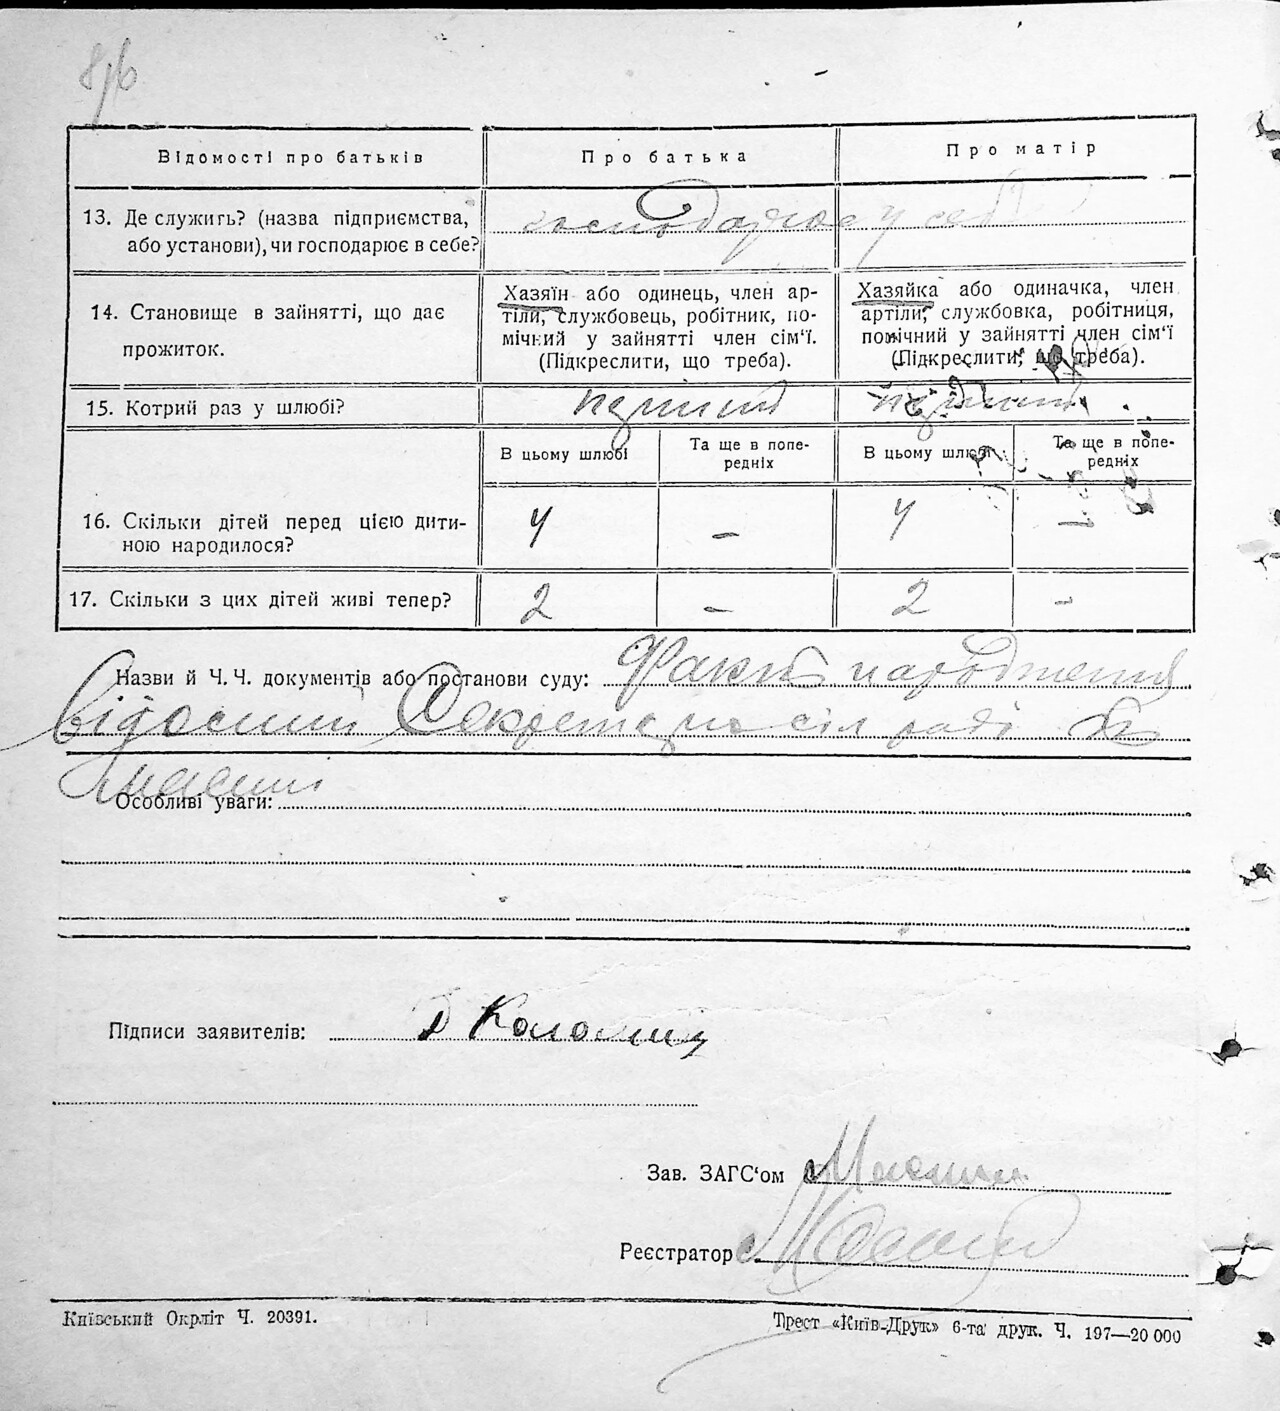 Відомості про батьків
Про батька
Про матір
13. Де служить? (назва підприємства, або установи), чи господарює в себе?
господарює у себе
14. Становище в зайнятті, що дає прожиток.
Хазяїн або одинець, член ар-
тіли, службовець, робітник, по-
мічний у зайнятті член сім'ї.
(Підкреслити, що треба).
Хазяйка або одиначка, член
артіли, службовка, робітниця,
помічний у зайнятті член сім'ї
(Підкреслити, що треба).
15. Котрий раз у шлюбі?
перший
перший
В цьому шлюбі
Та ще в попе-
редніх
В цьому шлюбі
Та ще в попе-
редніх
16. Скільки дітей перед цією дити-
ною народилося?
4
-
4
17. Скільки з цих дітей живі тепер?
2
-
2
-
Назви й Ч. Ч. документів або постанови суду: Факт народження
відомий Секретарю сіл ради
Особливі уваги:
Підписи заявителів:
Зав. ЗАГС'ом
Реєстратор
Київський Окрліт Ч. 20391.
Трест «Київ-Друк» 6-та друк. Ч. 197—20 000